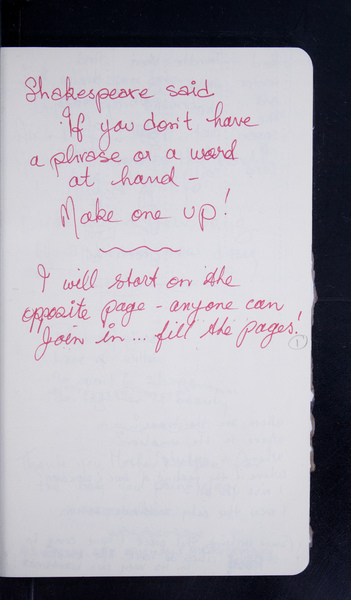 Shakespeare said
If you don't have
a phrase or a word
at hand -
Make one up!
I will start on the
opposite page - anyone can
join in... fill the pages!
1